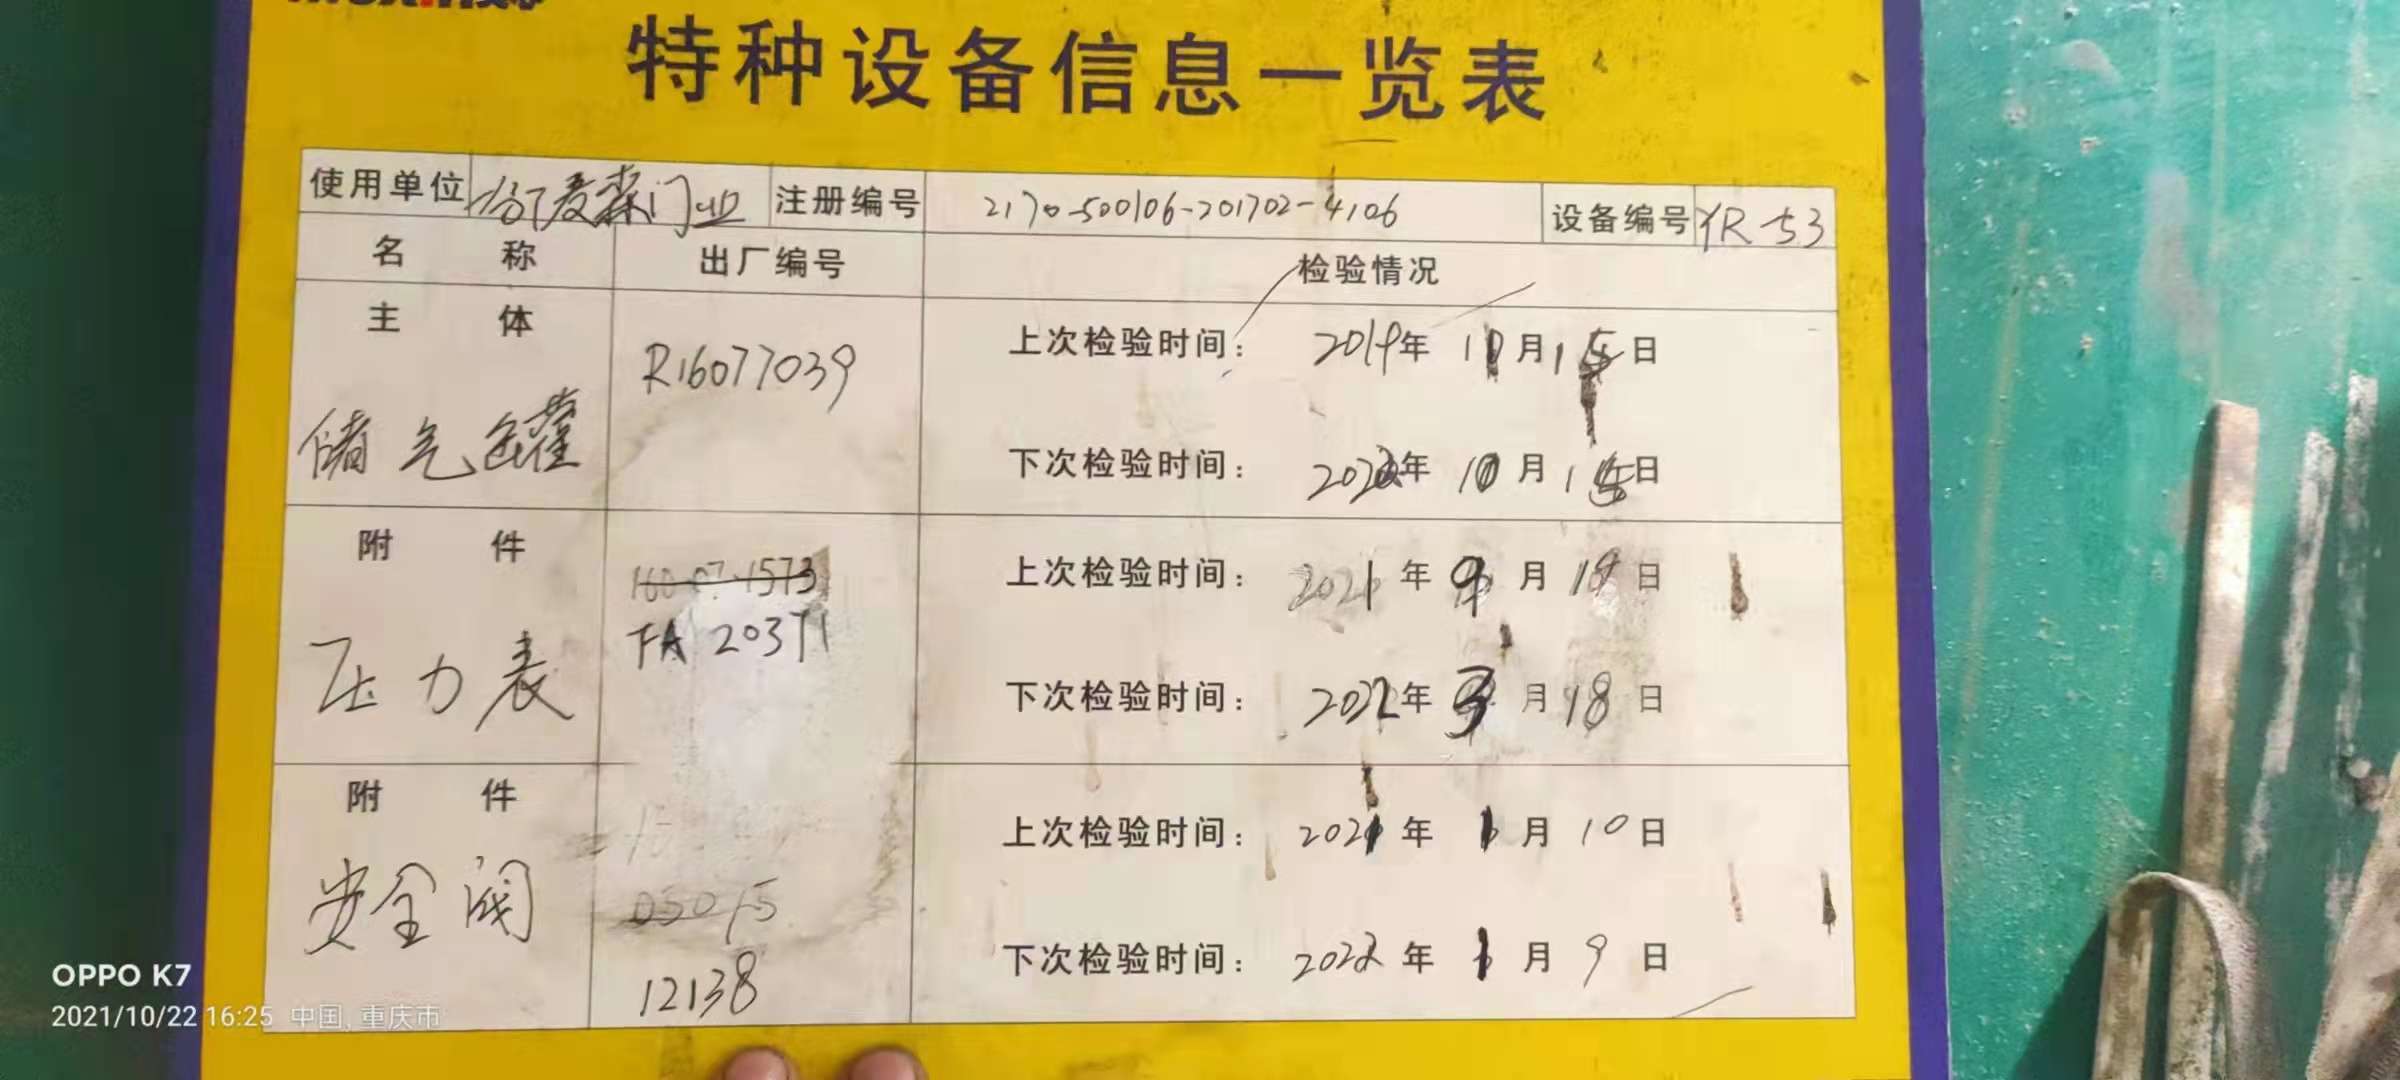 特种设备信息一览表
使用单位 麦森门业 注册编号 2170-500106-201702-4106 设备编号 YR-53
名称 出厂编号 检验情况
主体 R16077039 上次检验时间： 2019年 月 日
储气罐 下次检验时间： 2022年 10月 日
附件 上次检验时间： 2021年 9月 19日
压力表 TA 20371 下次检验时间： 2022年 3月 18日
附件 上次检验时间： 2021年 1月 10日
安全阀 12138 下次检验时间： 2022年 1月 9日
OPPO K7
2021/10/22 16:25 中国, 重庆市